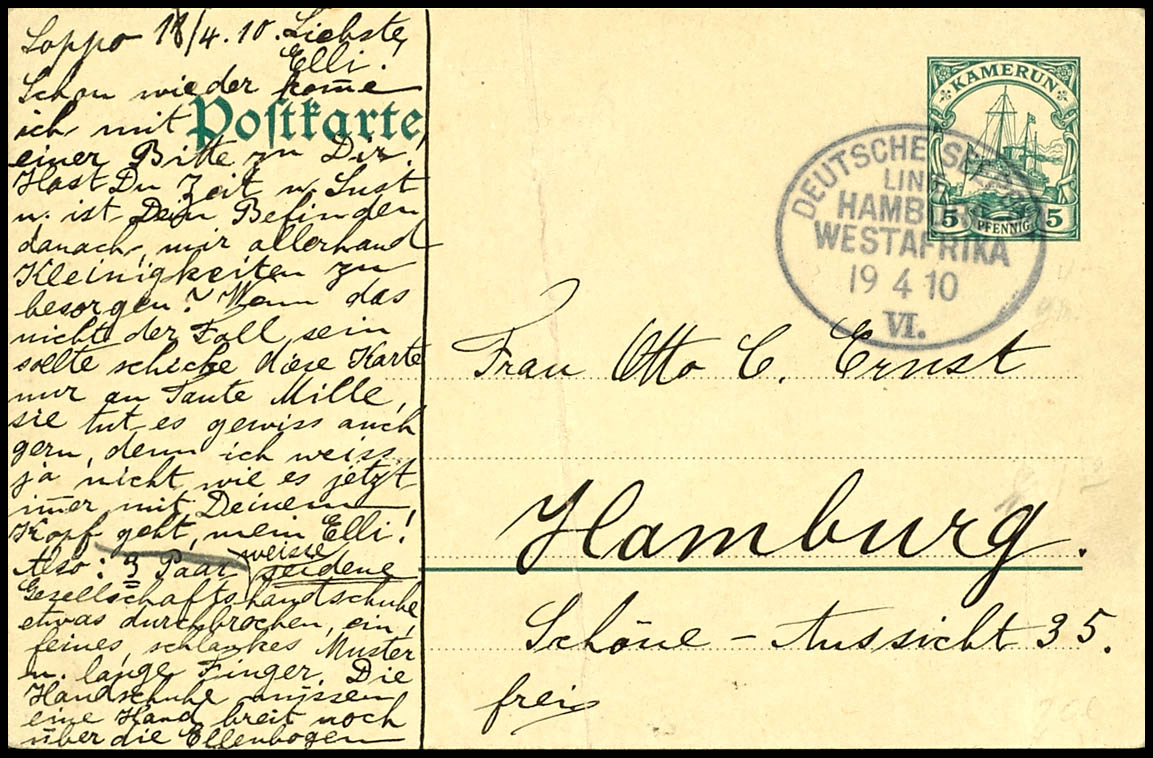 Soppo 18/4.10. Liebste
Elli!
Schon wieder kom̄e
ich mit
Postkarte
einer Bitte zu Dir.
Hast Du Zeit u. Lust
u. ist Dein Befinden
danach, mir allerhand
Kleinigkeiten zu
besorgen? Wenn das
nicht der Fall sein
sollte schicke diese Karte
nur an Tante Mille,
sie tut es gewiss auch
gern, denn ich weiss
ja nicht wie es jetzt
im̄er mit Deinem
Kopf geht, mein Elli!
Also: 3 Paar weisse seidene
Gesellschaftshandschuhe
etwas durchbrochen, ein
feines, schlankes Muster
u. lange Finger. Die
Handschuhe müssen
eine Hand breit noch
über die Ellenbogen
KAMERUN
5 PFENNIG 5
DEUTSCHE SEE
LIN
HAMBUR
WESTAFRIKA
19 4 10
VI.
Frau Otto C. Ernst
Hamburg.
Schöne-Aussicht 35.
frei